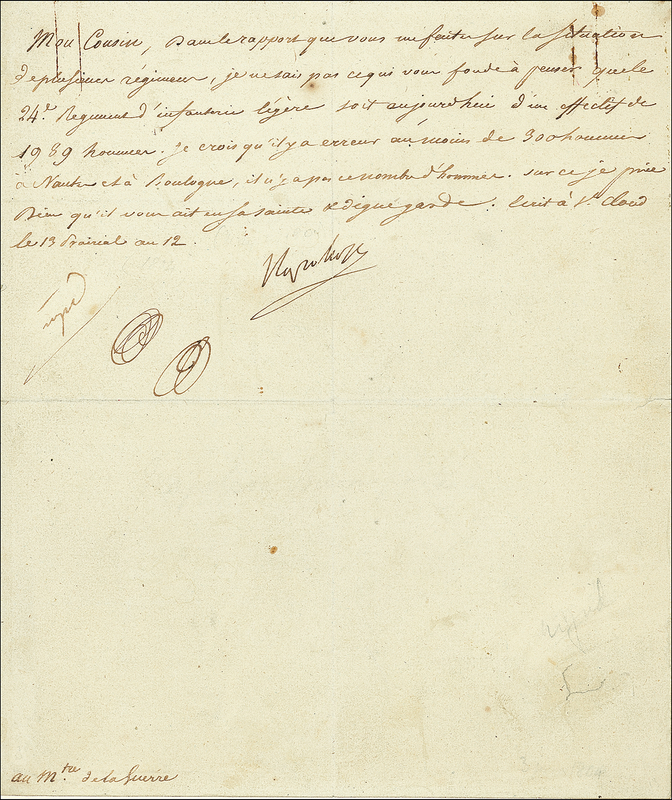 Mon Cousin, Dans le rapport que vous me faites sur la Situation
de plusieurs régimens, je ne sais pas ce qui vous fonde à penser que le
24.e Regiment d'infanterie légère soit aujourdhui d'un effectif de
1989 hommes. Je crois qu'il y a erreur au moins de 300 hommes
à Nantes et à Boulogne, il n'y a pas ce nombre d'hommes. sur ce je prie
Dieu qu'il vous ait en sa sainte et digne garde. Ecrit à St. Cloud
le 13 Prairial an 12.
Napoleon
au M.tre de la Guerre